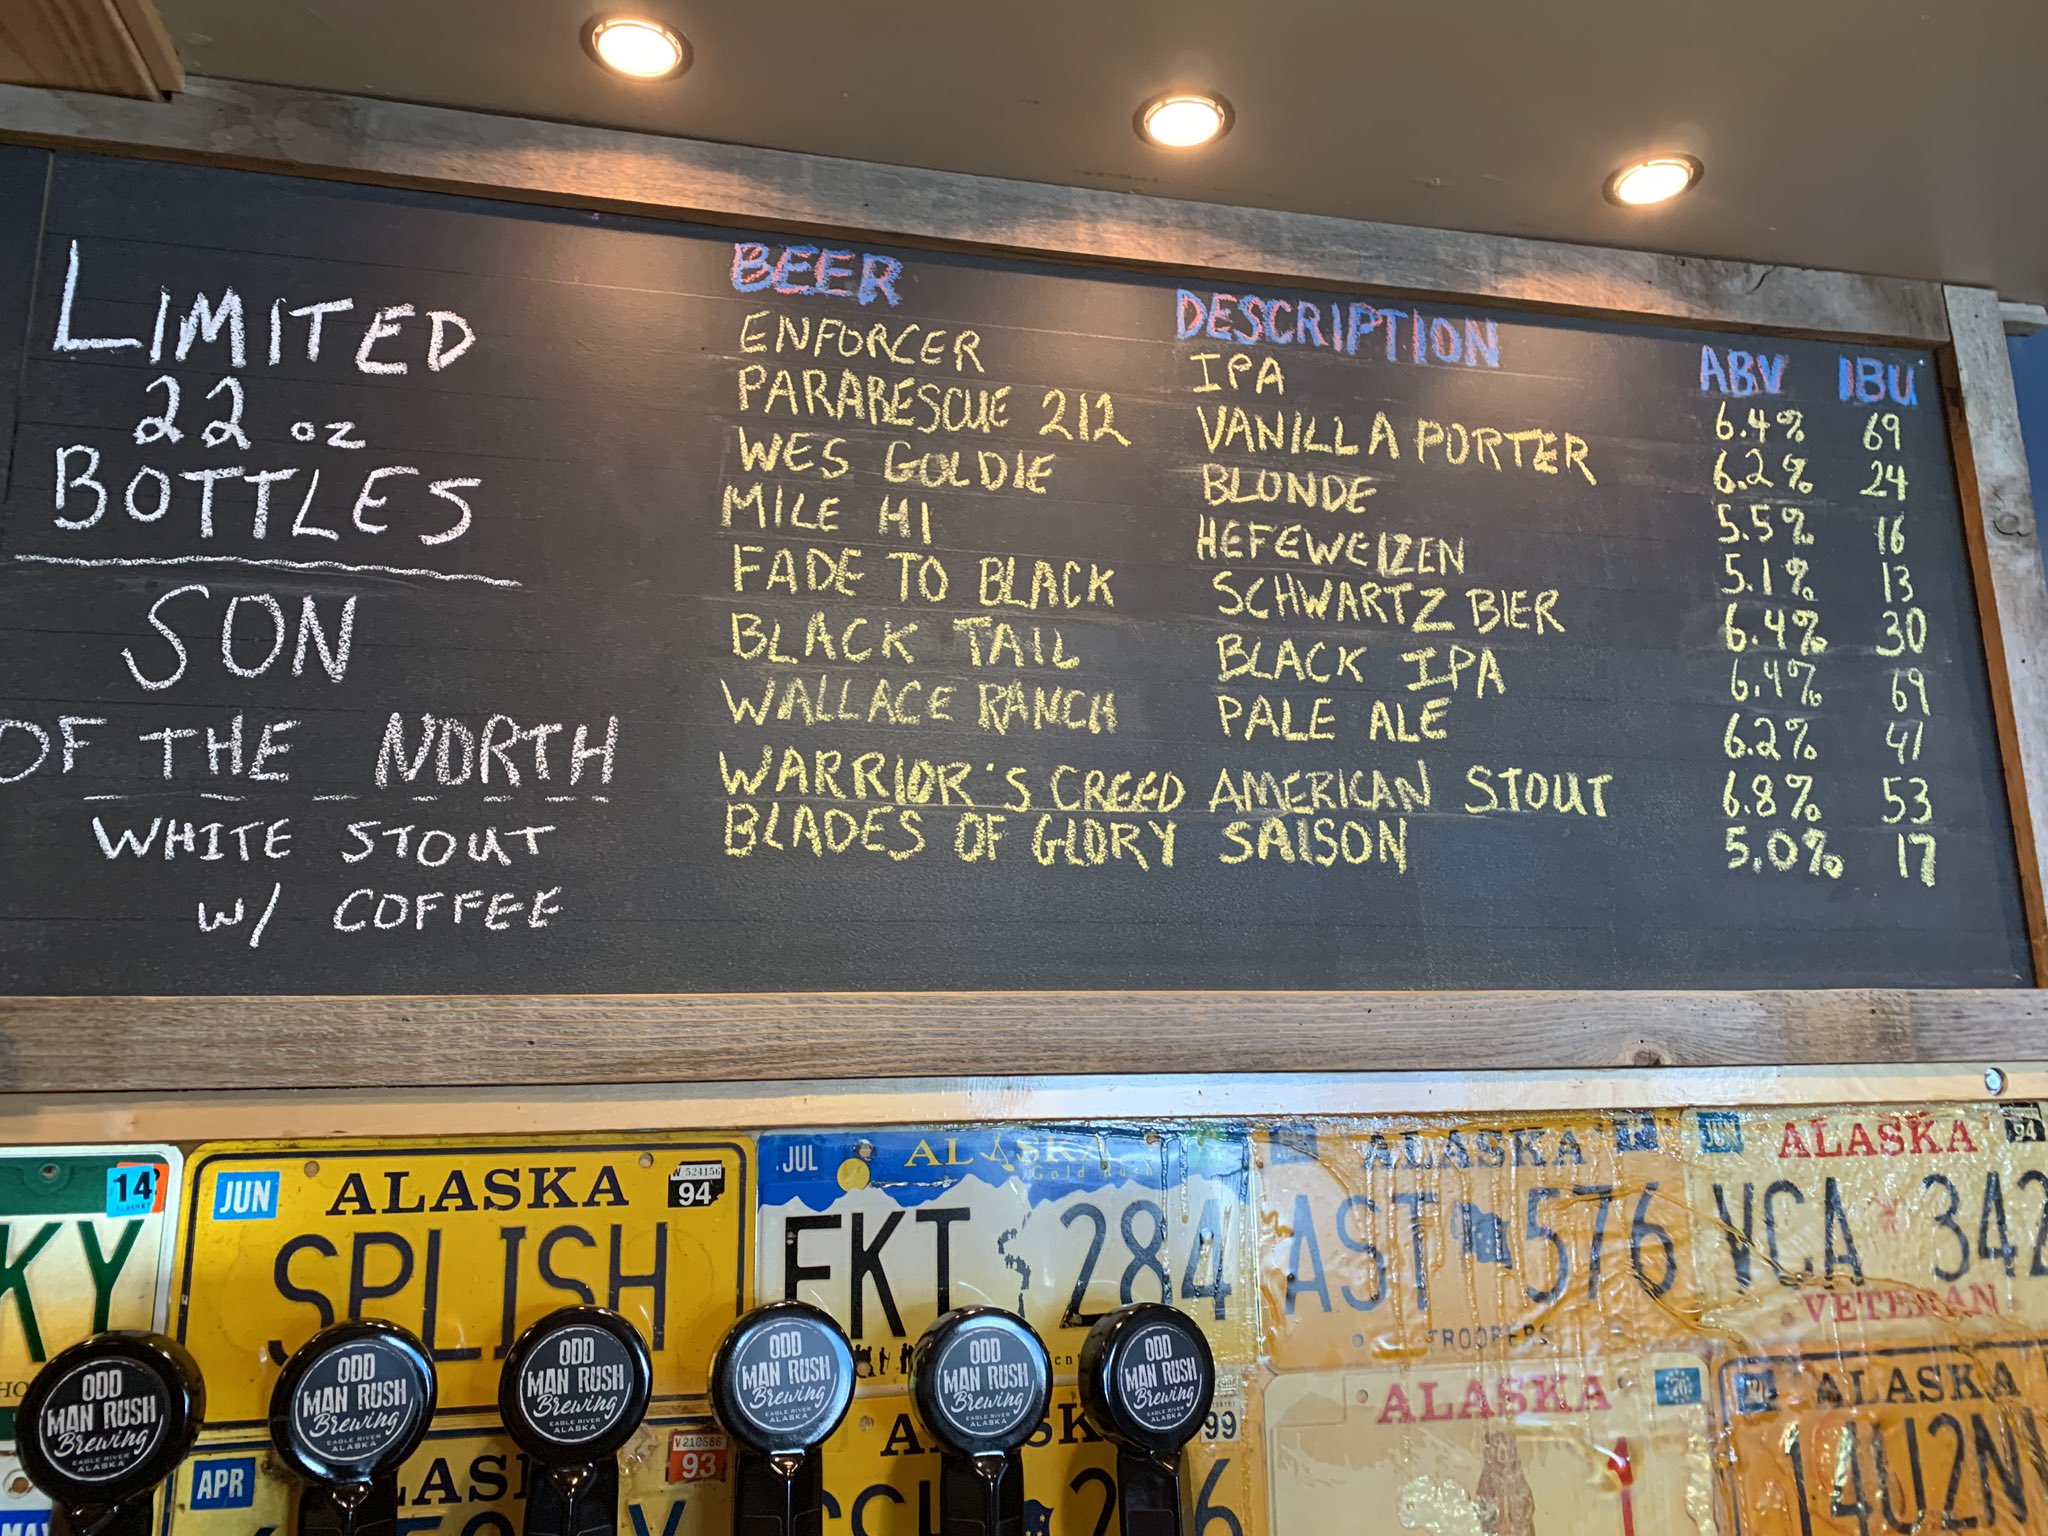 LIMITED
22 oz
BOTTLES
SON
OF THE NORTH
WHITE STOUT
W/ COFFEE
BEER DESCRIPTION ABV IBU
ENFORCER IPA 6.4% 69
PARABESCUE 212 VANILLA PORTER 6.2% 24
WES GOLDIE BLONDE 5.5% 16
MILE HI HEFEWEIZEN 5.1% 13
FADE TO BLACK SCHWARTZ BIER 6.4% 30
BLACK TAIL BLACK IPA 6.4% 69
WALLACE RANCH PALE ALE 6.2% 41
WARRIOR'S CREED AMERICAN STOUT 6.8% 53
BLADES OF GLORY SAISON 5.0% 17
14
KY
JUN ALASKA 94
SPLISH
JUL ALASKA
Gold Rush
FKT 284
ALASKA
AST 576
TROOPERS
JUN ALASKA 94
VCA 342
VETERAN
APR
93
99
ALASKA
ALASKA
14U2N
ODD
MAN RUSH
Brewing
EAGLE RIVER
ALASKA
ODD
MAN RUSH
Brewing
EAGLE RIVER
ALASKA
ODD
MAN RUSH
Brewing
EAGLE RIVER
ALASKA
ODD
MAN RUSH
Brewing
EAGLE RIVER
ALASKA
ODD
MAN RUSH
Brewing
EAGLE RIVER
ALASKA
ODD
MAN RUSH
Brewing
EAGLE RIVER
ALASKA